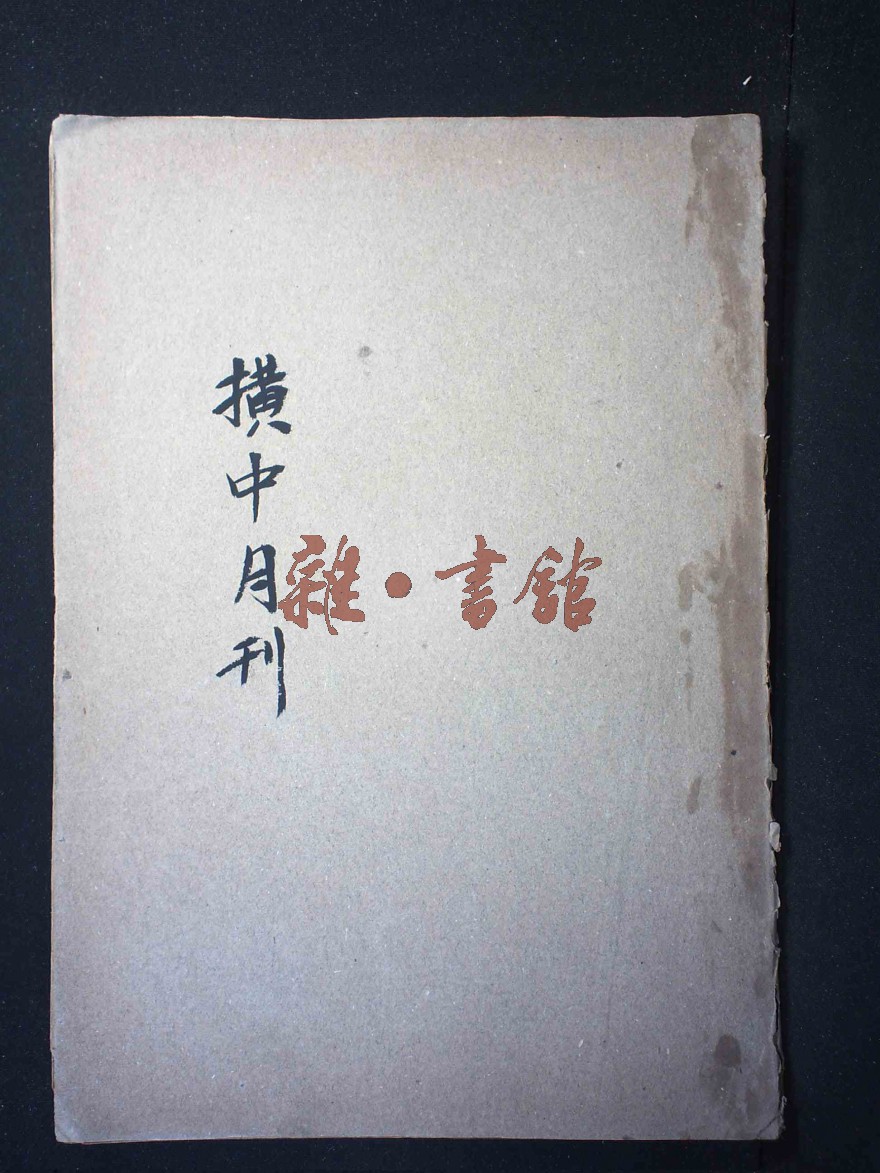 横中月刊
雜·書館